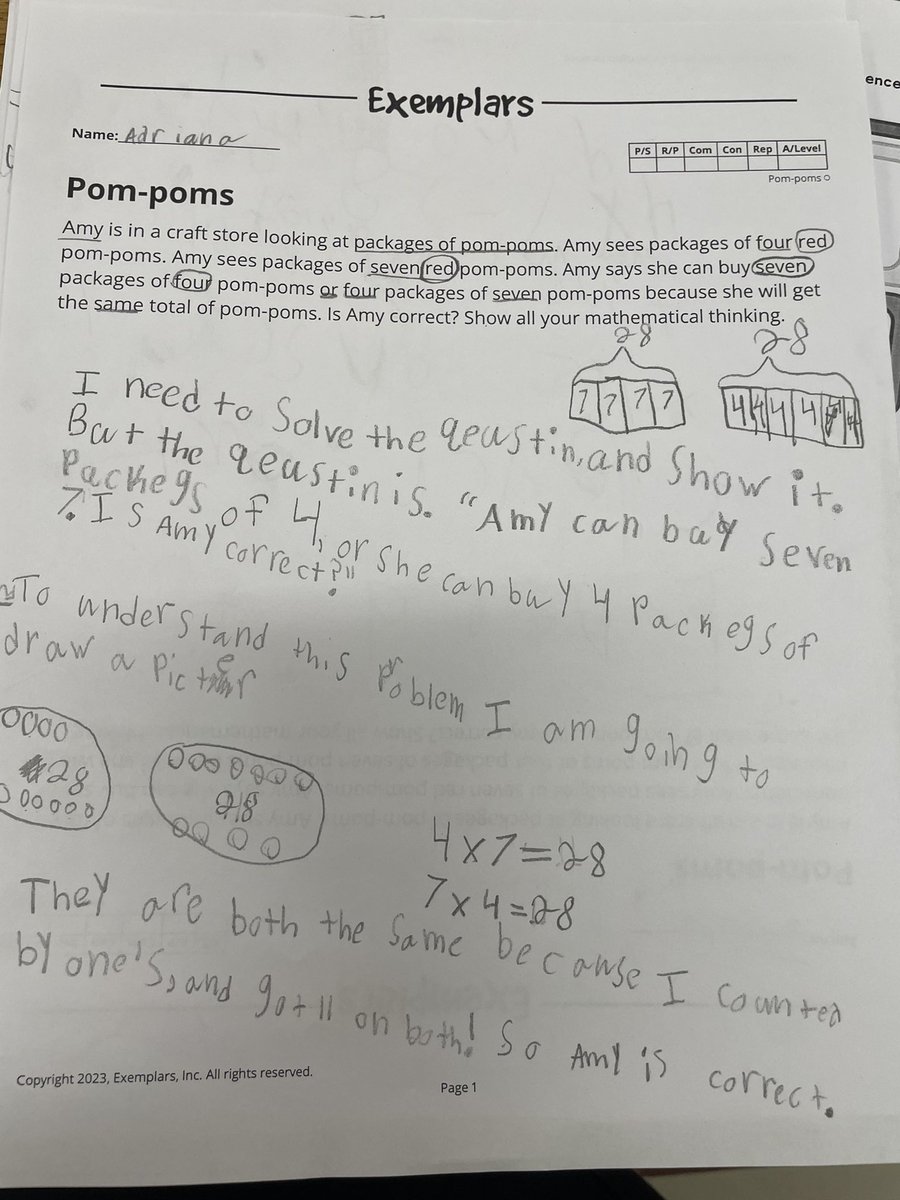 ence
Exemplars
Name: Adriana
P/S R/P Com Con Rep A/Level
Pom-poms
Pom-poms
Amy is in a craft store looking at packages of pom-poms. Amy sees packages of four red
pom-poms. Amy sees packages of seven red pom-poms. Amy says she can buy seven
packages of four pom-poms or four packages of seven pom-poms because she will get
the same total of pom-poms. Is Amy correct? Show all your mathematical thinking.
28 28
7 7 7 7 4 4 4 4
I need to Solve the qeustin, and Show it.
But the qeustin is. "Amy can buy Seven
Packegs of 4, or She can buy 4 Packegs of
7. Is Amy correct?"
To understand this Poblem I am going to
draw a Picter
28
28
4x7=28
7x4=28
They are both the Same because I counted
by one's, and got 11 on both! So Amy is correct.
Copyright 2023, Exemplars, Inc. All rights reserved.
Page 1